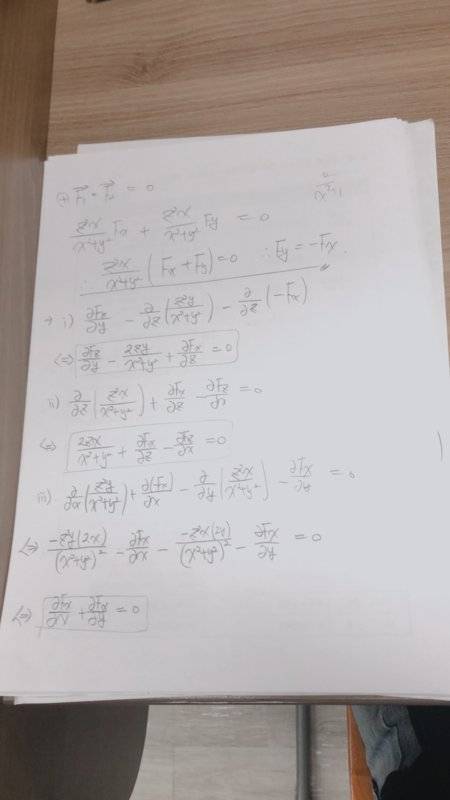 → F₁ · F₂ = 0
z²x/(x²+y²) Fx + z²x/(x²+y²) Fy = 0
∴ z²x/(x²+y²) (Fx + Fy) = 0 ∴ Fy = -Fx.
→ i) ∂Fz/∂y - ∂/∂z (z²y/(x²+y²)) - ∂/∂z (-Fx)
⇔ ∂Fz/∂y - 2zy/(x²+y²) + ∂Fx/∂z = 0
ii) ∂/∂z (z²x/(x²+y²)) + ∂Fx/∂z - ∂Fz/∂x = 0
⇔ 2zx/(x²+y²) + ∂Fx/∂z - ∂Fz/∂x = 0
iii) ∂/∂x (z²y/(x²+y²)) + ∂(Fx)/∂x - ∂/∂y (z²x/(x²+y²)) - ∂Fx/∂y = 0
⇔ -z²y(2x)/(x²+y²)² - ∂Fx/∂x - -z²x(2y)/(x²+y²)² - ∂Fx/∂y = 0
⇔ ∂Fx/∂x + ∂Fx/∂y = 0